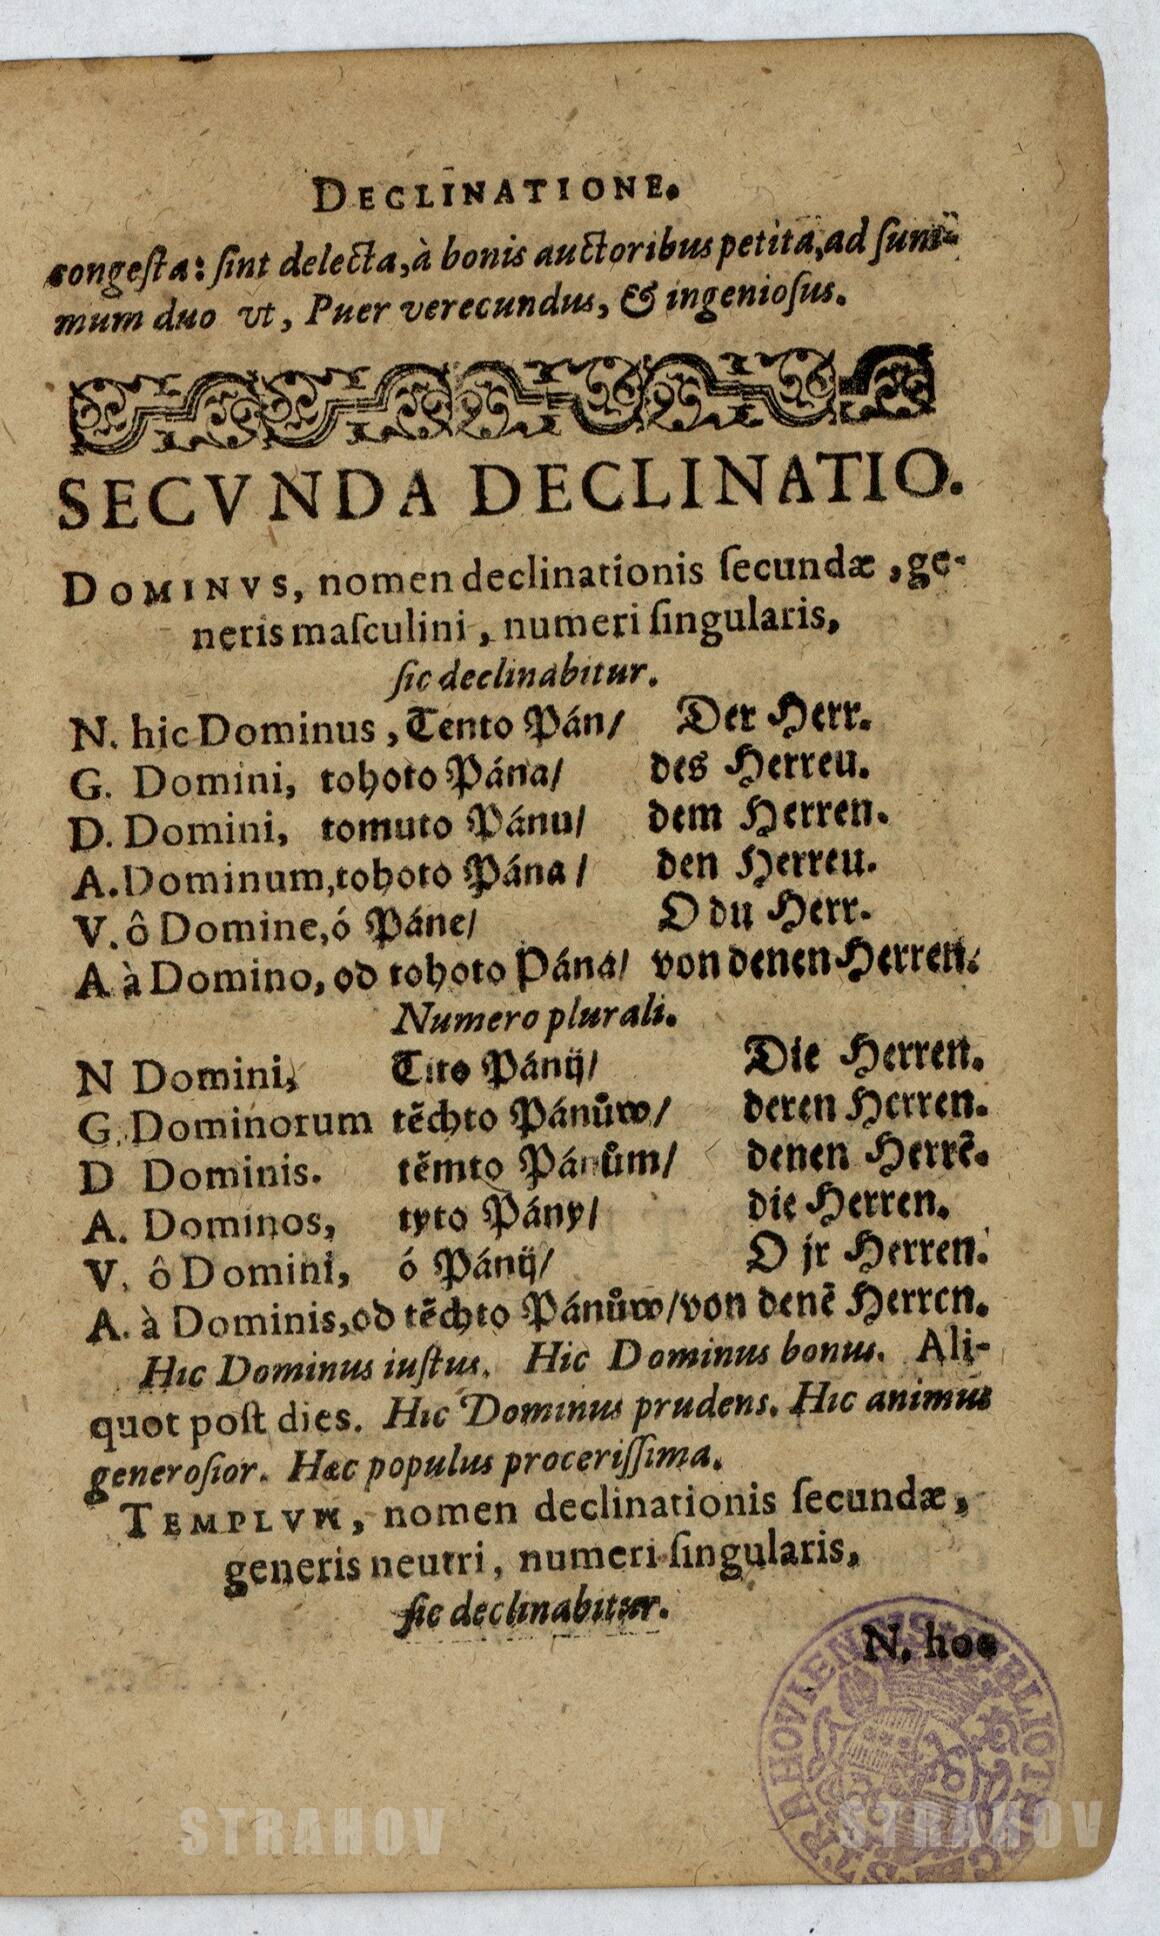 DECLINATIONE.
congesta: ſint delecta, à bonis auctoribus petita, ad ſum-
mum duo vt, Puer verecundus, & ingenioſus.
SECVNDA DECLINATIO.
DOMINVS, nomen declinationis ſecundæ, ge-
neris maſculini, numeri ſingularis,
ſic declinabitur.
N. hic Dominus, Tento Pán/ Der Herr.
G. Domini, tohoto Pána/ des Herreu.
D. Domini, tomuto Pánu/ dem Herren.
A. Dominum, tohoto Pána/ den Herreu.
V. ô Domine, ó Páne/ O du Herr.
A à Domino, od tohoto Pána/ von denen Herren.
Numero plurali.
N Domini, Tito Pánij/ Die Herren.
G. Dominorum těchto Pánůw/ deren Herren.
D Dominis. těmto Pánům/ denen Herrē.
A. Dominos, tyto Pány/ die Herren.
V. ô Domini, ó Pánij/ O jr Herren.
A. à Dominis, od těchto Pánůw/ von denē Herren.
Hic Dominus iuſtus. Hic Dominus bonus. Ali-
quot poſt dies. Hic Dominus prudens. Hic animus
generoſior. Hæc populus proceriſſima.
TEMPLVM, nomen declinationis ſecundæ,
generis neutri, numeri ſingularis,
ſic declinabitur.
N. hoc
STRAHOV STRAHOV